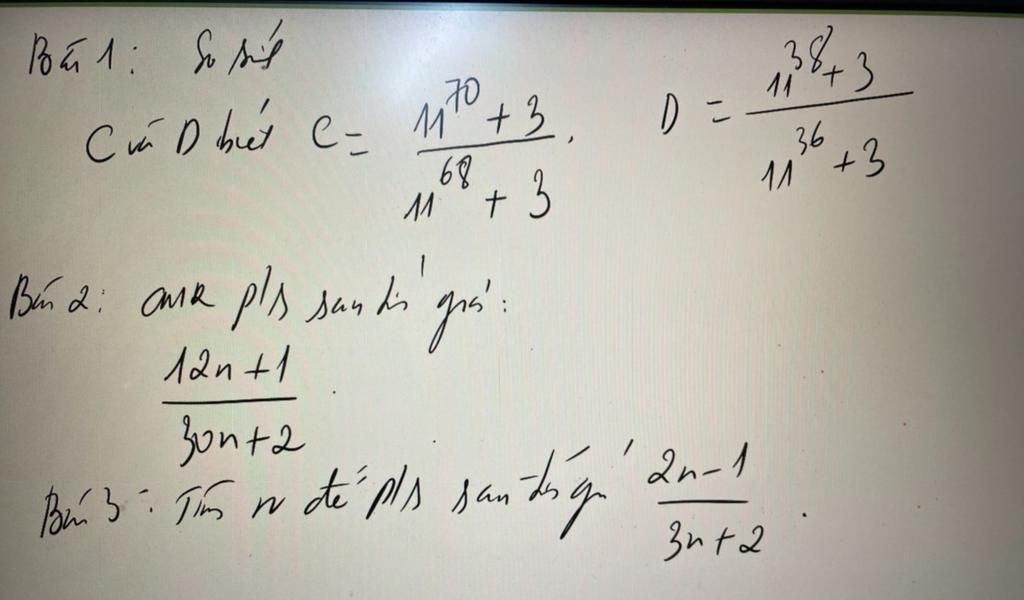 Bài 1: So sánh
C và D biết C = \frac{11^{70} + 3}{11^{68} + 3}. D = \frac{11^{38} + 3}{11^{36} + 3}
Bài 2: CMR p/s sau tối giản:
\frac{12n + 1}{30n + 2}
Bài 3: Tìm n để p/s sau tối giản \frac{2n - 1}{3n + 2}.